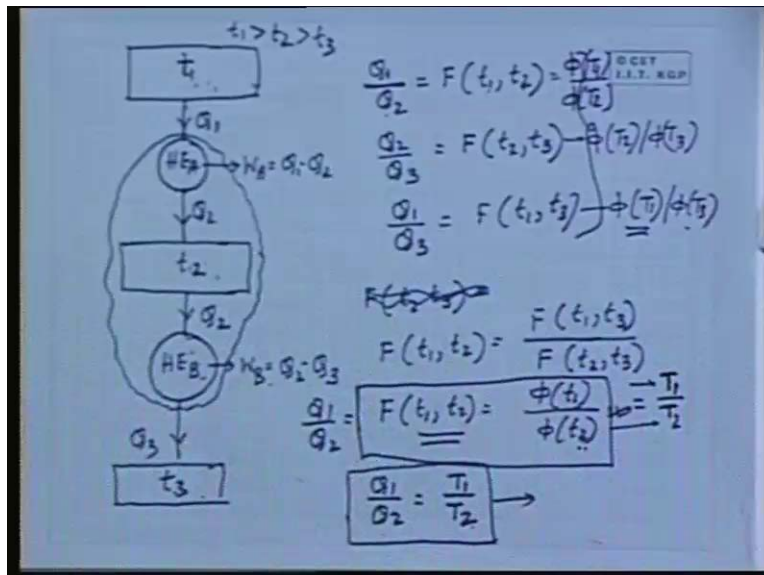 t₁ > t₂ > t₃
t₁
Q₁
HE_A → W_A = Q₁ - Q₂
Q₂
t₂
Q₂
HE_B → W_B = Q₂ - Q₃
Q₃
t₃
Q₁/Q₂ = F(t₁, t₂) = φ(T₁)/φ(T₂)
© CET
I.I.T. KGP
Q₂/Q₃ = F(t₂, t₃) → φ(T₂)/φ(T₃)
Q₁/Q₃ = F(t₁, t₃) → φ(T₁)/φ(T₃)
F(t₁, t₂) = F(t₁, t₃)/F(t₂, t₃)
Q₁/Q₂ = F(t₁, t₂) = φ(t₁)/φ(t₂) = T₁/T₂
Q₁/Q₂ = T₁/T₂ →